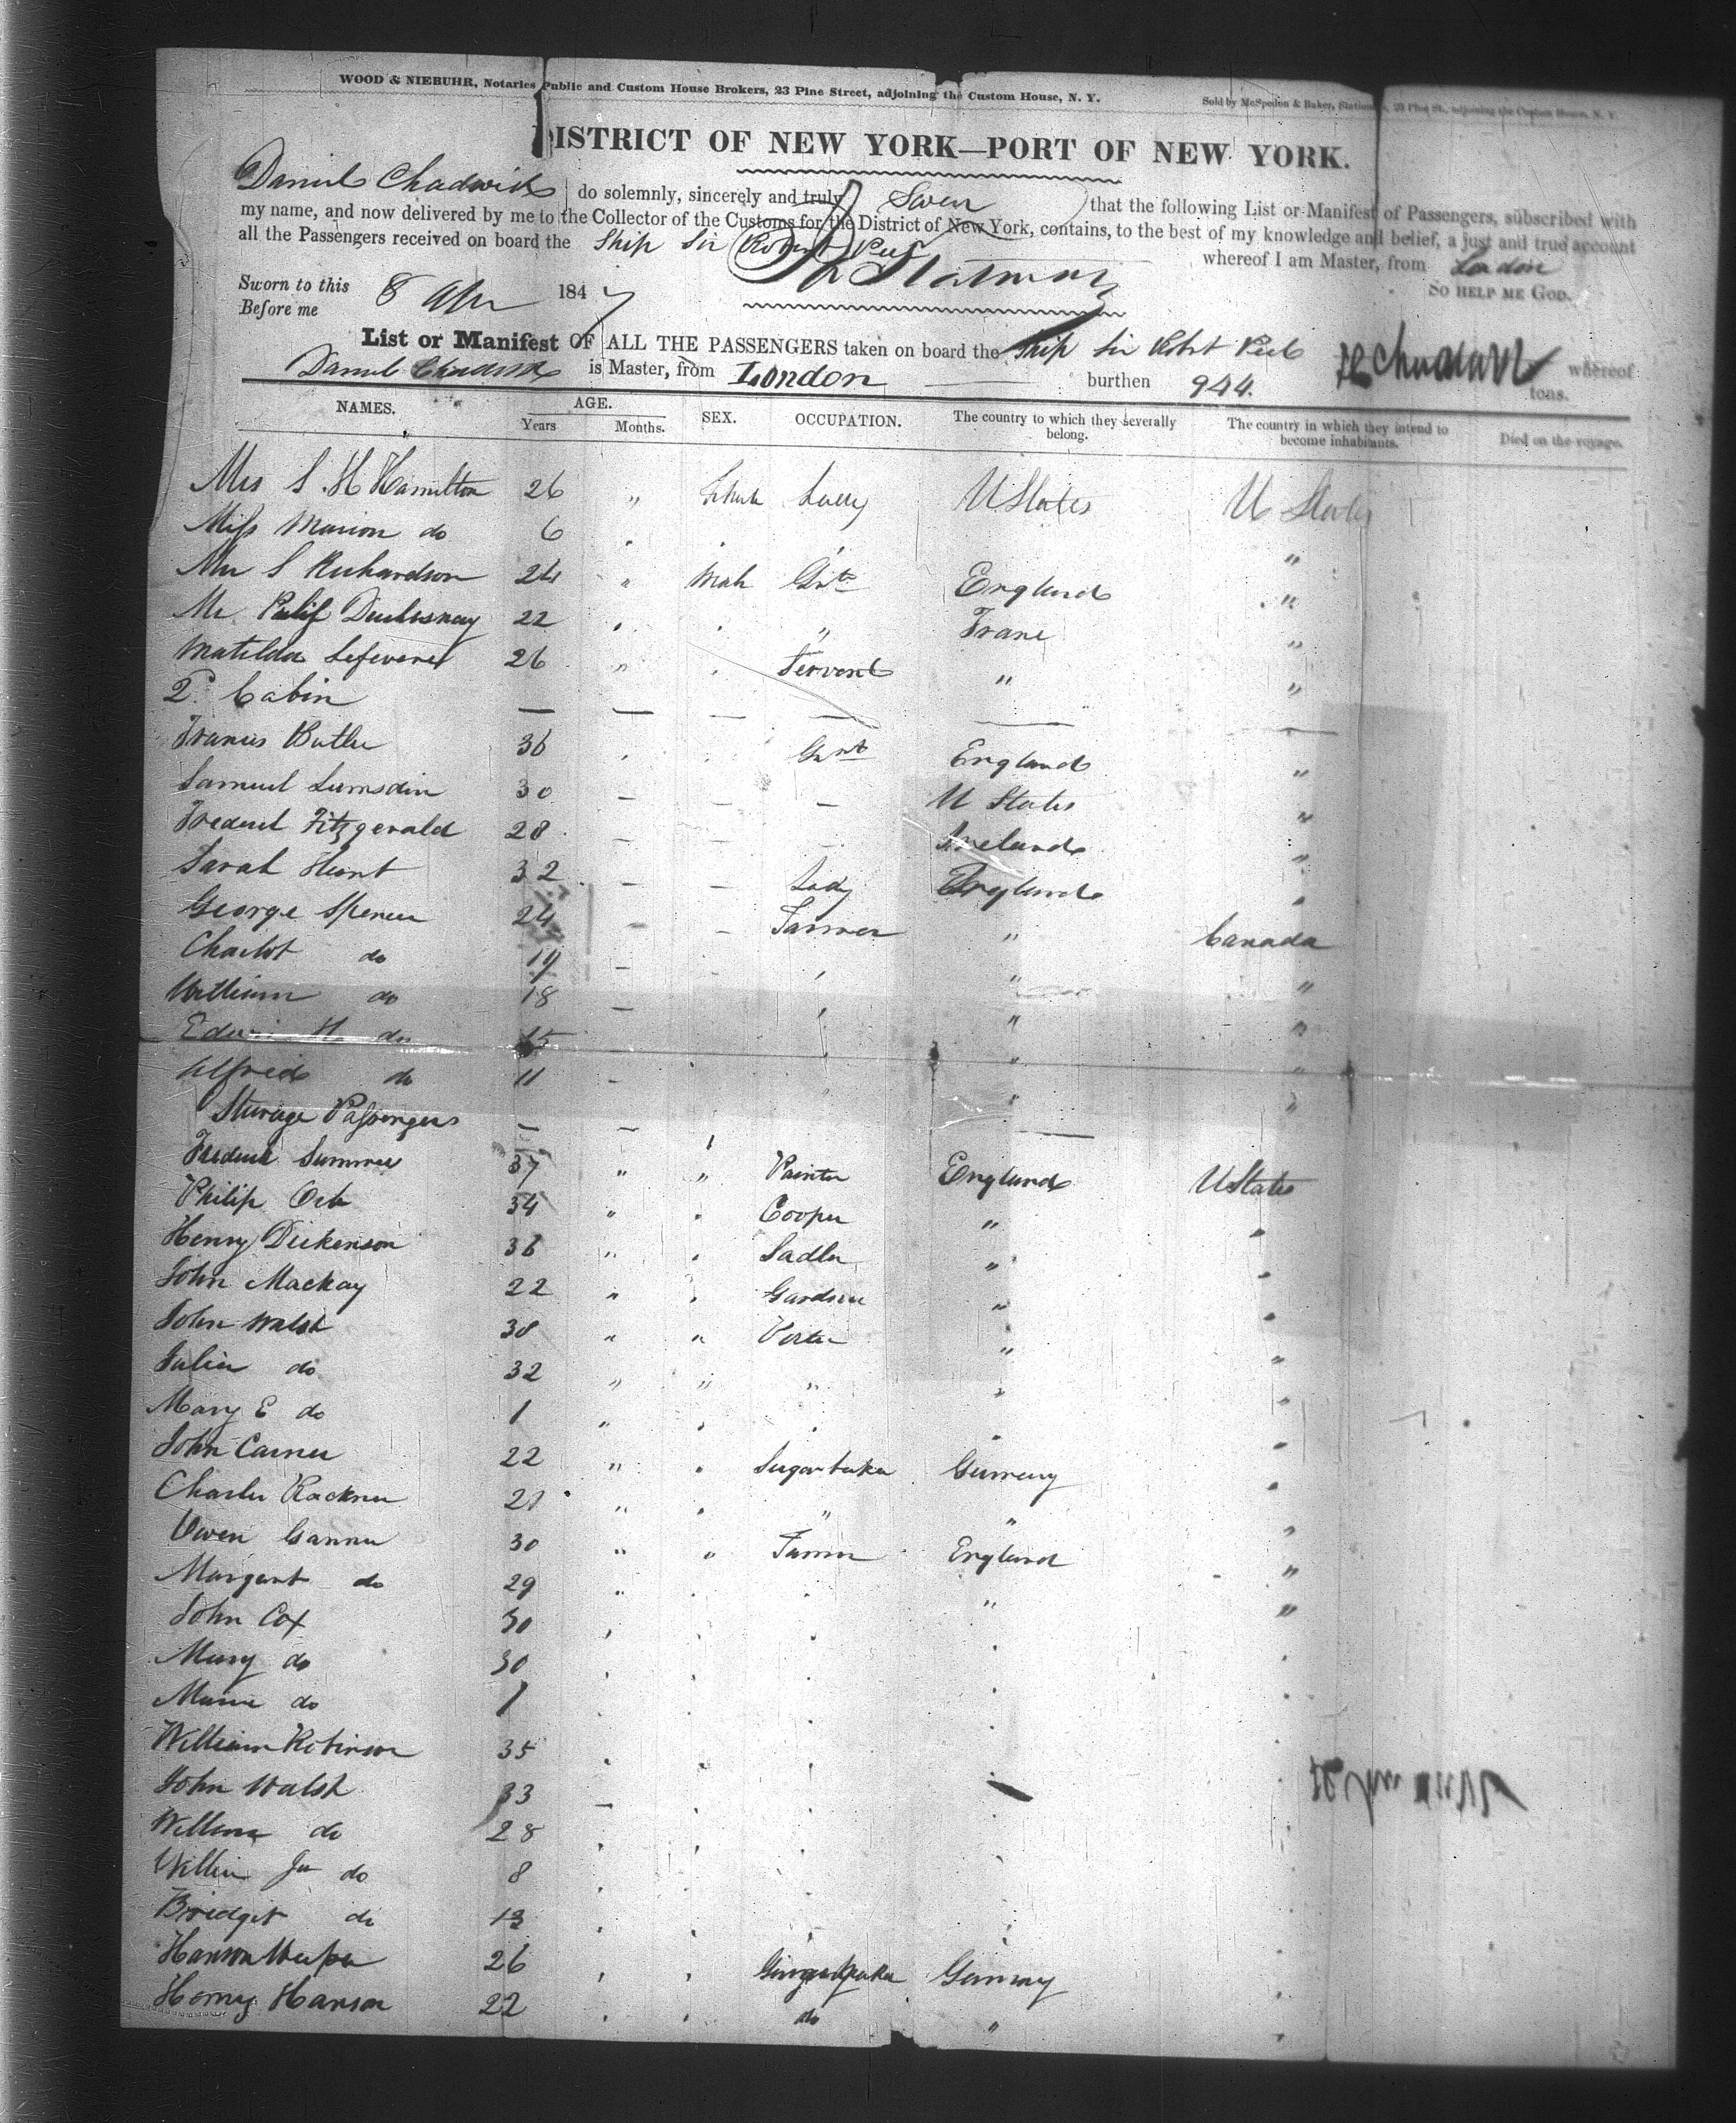 WOOD & NIEBUHR, Notaries Public and Custom House Brokers, 23 Pine Street, adjoining the Custom House, N. Y.
Sold by McSpedon & Baker, Stationers, 23 Pine St., adjoining the Custom House, N. Y.
DISTRICT OF NEW YORK—PORT OF NEW YORK.
Daniel Chadwick do solemnly, sincerely and truly Swear that the following List or Manifest of Passengers, subscribed with
my name, and now delivered by me to the Collector of the Customs for the District of New York, contains, to the best of my knowledge and belief, a just and true account
all the Passengers received on board the Ship Sir Robert Peel whereof I am Master, from London
Sworn to this 8 Apr 1847
SO HELP ME GOD.
Before me
List or Manifest OF ALL THE PASSENGERS taken on board the Ship Sir Robt Peel whereof
Daniel Chadwick is Master, from London burthen 944. tons.
NAMES. AGE. Years Months. SEX. OCCUPATION. The country to which they severally belong. The country in which they intend to become inhabitants. Died on the voyage.
Mrs S. H Hamilton 26 " Lady U States U States
Miss Marion do 6 "
Mr S Richardson 24 " Male Gnt England "
Mr Duchesnay 22 " France "
Matilda Lefevere 26 " Servent " "
2 Cabin — — — — — —
Francis Butler 36 Gnt England "
Samuel Lumsdin 30 — — — U States "
Frederick Fitzgerald 28 — — — Ireland "
Sarah Hunt 32 — — Lady England "
George Spencer 24 — — Farmer " Canada
Charlot do 19 — " "
William do 18 — " "
Edwin H do 15 " "
Alfred do 11 — " "
Sterage Passengers — — —
Frederick Summer 37 " " Painter England U States
Philip Orb 34 " Cooper " "
Henry Dickenson 36 " Sadler " "
John Mackay 22 " Gardner " "
John Walsh 38 " " Porter " "
Julia do 32 " " " "
Mary E do 1 "
John Carner 22 " Sugarbaker Germany "
Charles Rackner 21 " " " "
Owen Ganner 30 " " Farmer England "
Margaret do 29 " " "
John Cox 30
Mary do 30
do 1
William Robinson 35
John Walsh 33 —
do 28
Jnr do 8
Bridget do 13
26 Germany
Henry Hanson 22 do "